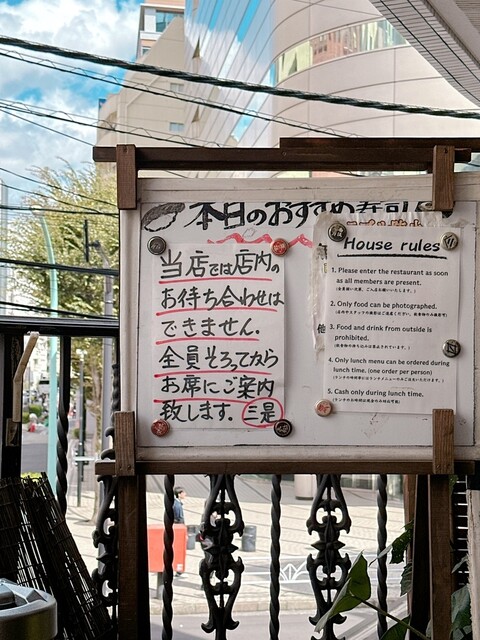 本日のおすすめ寿司
当店では店内の
お待ち合わせは
できません.
全員そろってから
お席にご案内
致します. 三是
House rules
1. Please enter the restaurant as soon
as all members are present.
2. Only food can be photographed.
3. Food and drink from outside is
prohibited.
4. Only lunch menu can be ordered during
lunch time. (one order per person)
5. Cash only during lunch time.
他